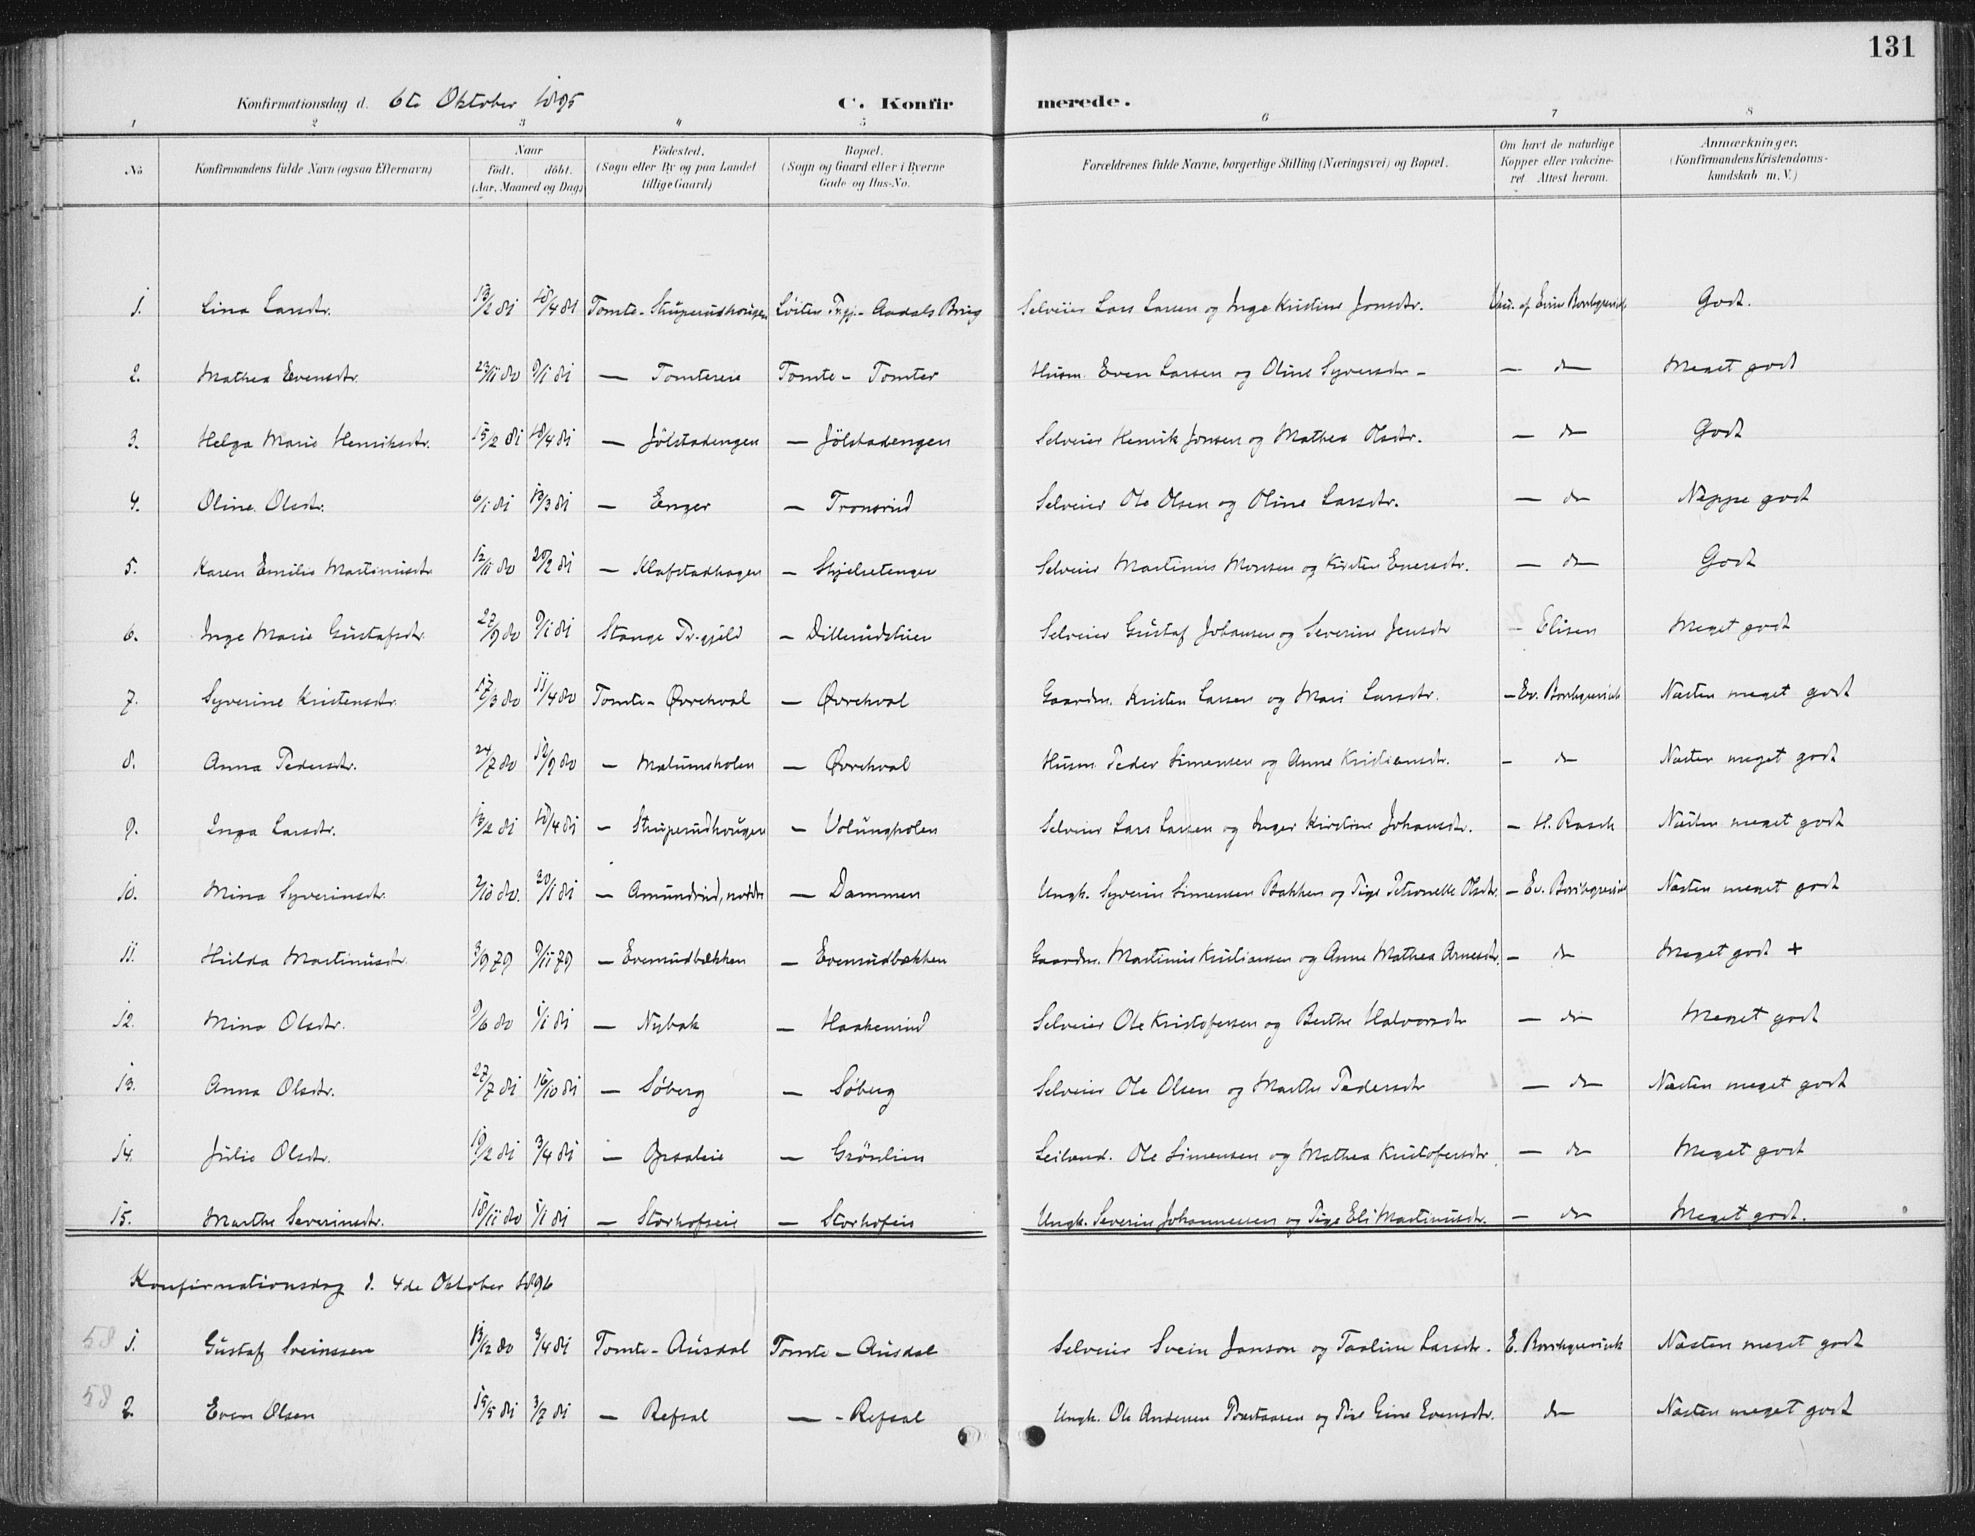 131
Konfirmationsdag d. 6te Oktober 1895 C. Konfirmerede.
1 2 3 4 5 6 7 8
No. Konfirmandens fulde Navn (ogsaa Efternavn) Naar födt. döbt. (Aar, Maaned og Dag) Födested. (Sogn eller By og paa Landet tillige Gaard) Bopæl. (Sogn og Gaard eller i Byerne Gade og Hus-No. Forældrenes fulde Navne, borgerlige Stilling (Næringsvei) og Bopæl. Om havt de naturlige Kopper eller vakcineret Attest herom. Anmærkninger. (Konfirmandens Kristendomskundskab m. V.)
1. Lina Larsdtr. 13/2 81 18/4 81 Tomte - Struperudhougen Löiten Prgj. - Aadals Brug Selveier Lars Larsen og Inge Kristine Jonsdtr. Vac. af Even Borchgrevink Godt.
2. Mathea Evensdtr. 23/11 80 9/1 81 — Tomtereie Tomte - Tomter Husm. Even Larsen og Oline Syversdtr - — do Meget godt
3. Helga Marie Henriksdtr. 15/2 81 18/4 81 — Jölstadengen — Jölstadengen Selveier Henrik Jonsen og Mathea Olsdtr. — do Godt
4. Oline Olsdtr. 6/1 81 13/3 81 — Enger — Tronsrud Selveier Ole Olsen og Oline Larsdtr. — do Neppe godt
5. Karen Emilie Martinusdtr 12/11 80 20/2 81 — Klafstadhagen — Skjelsetenger Selveier Martinus Monsen og Kirsten Enersdtr. — do Godt
6. Inge Marie Gustafsdtr. 27/9 80 9/1 81 Stange Pr.gjeld — Dillerudstuen Selveier Gustaf Johansen og Severine Jensdtr — Elisen Meget godt
7. Syverine Kristensdtr. 17/3 80 11/4 80 Tomte - Øvrehval — Øvrehval Gaardm. Kristen Larsen og Mari Larsdtr. — Ev. Borchgrevink Næsten meget godt
8. Anna Pedersdtr. 24/7 80 12/9 80 — Malumsholen — Øvrehval Husm Peder Simensen og Anne Kristiansdtr. - do Næsten meget godt
9. Inga Larsdtr. 13/2 81 18/4 81 — Struperudhougen — Volungholen Selveier Lars Larsen og Inger Kirstine Johansdtr. — H. Rasch Næsten meget godt
10. Mina Syverinsdtr. 2/10 80. 30/1 81 — Amundrud, nordre — Dammen Ungk. Syverin Simensen Bakken og Pige Petronelle Olsdtr. — Ev. Borchgrevink Næsten meget godt
11. Hilda Martinusdtr. 3/9 79 9/11 79 — Evensudbækken — Evensudbækken Gaardm. Martinus Kristiansen og Anne Mathea Arnesdtr. — do Meget godt +
12. Mina Olsdtr. 9/6 80 1/1 81 — Nybak — Haakenrud Selveier Ole Kristofersen og Berthe Halvorsdtr — do Meget godt
13. Anna Olsdtr. 27/7 81 16/10 81 — Söberg — Söberg Selveier Ole Olsen og Marthe Pedersdtr — do Næsten meget godt
14. Julie Olsdtr. 19/2 81 3/4 81 — Opsaleie — Grönlien Leilænd. Ole Simensen og Mathea Kristofersdtr. — do Meget godt
15. Marthe Severinsdtr. 18/11 80 1/1 81 — Storhofseie — Storhofeie Ungk. Severin Johannessen og Pige Eli Martinusdtr. — do Meget godt.
Konfirmationsdag d. 4de Oktober 1896
58 1. Gustaf Sveinssen 13/12 80 3/4 81 Tomte - Ausdal Tomte - Ausdal Selveier Svein Janson og Taaline Larsdtr. E. Borchgrevink Næsten meget godt
58 2. Even Olsen 15/5 81 3/7 81 — Refsal — - Refsal Ungk. Ole Andersen og Pige Gine Evensdtr. do Næsten meget godt